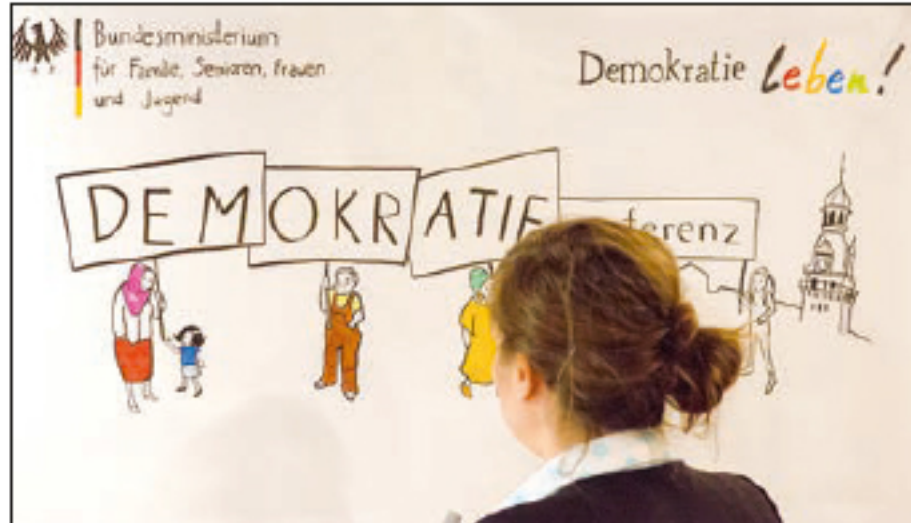 Bundesministerium
für Familie, Senioren, Frauen
und Jugend
Demokratie Leben!
DEMOKRATIE
ferenz